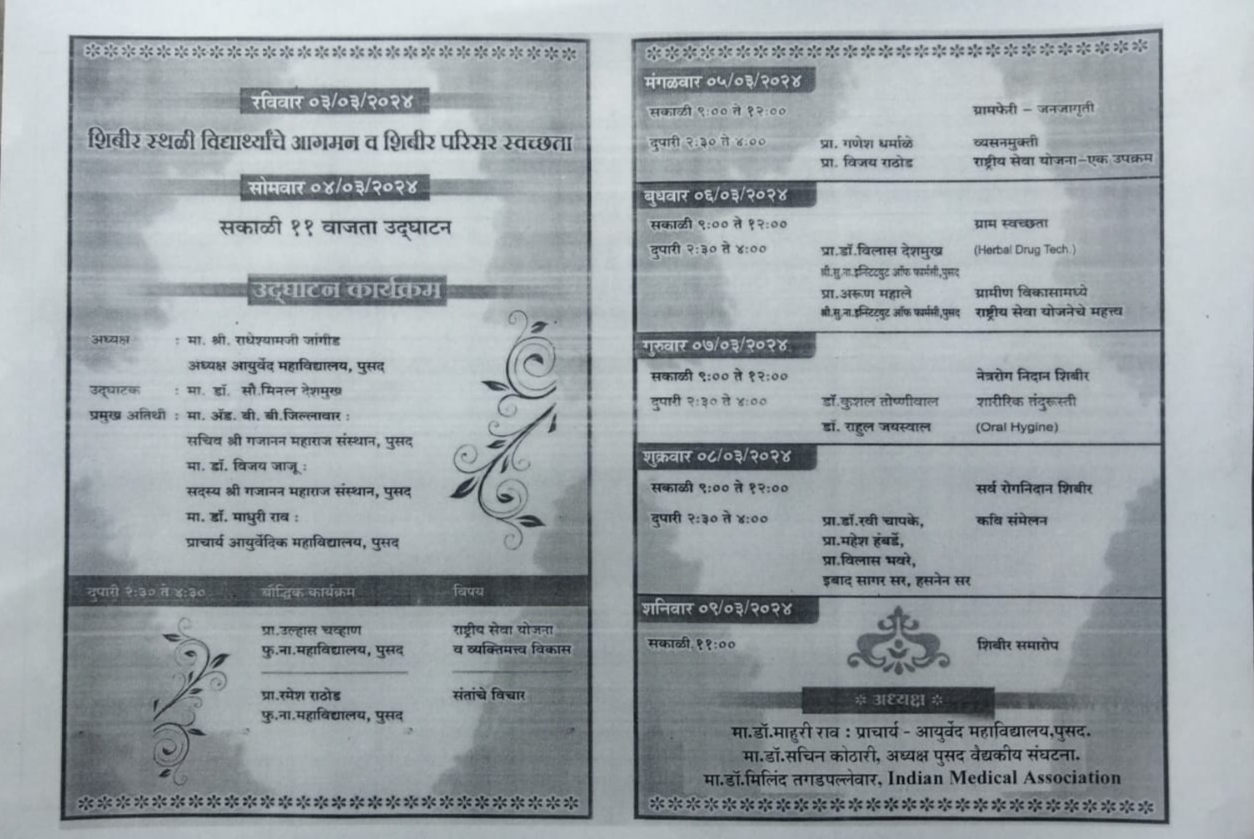 रविवार ०३/०३/२०२४
शिबीर स्थळी विद्यार्थ्यांचे आगमन व शिबीर परिसर स्वच्छता
सोमवार ०४/०३/२०२४
सकाळी ११ वाजता उद्‌घाटन
उद्‌घाटन कार्यक्रम
अध्यक्ष : मा. श्री. राधेश्यामजी जांगीड
अध्यक्ष आयुर्वेद महाविद्यालय, पुसद
उद्‌घाटक : मा. डॉ. सौ.मिनल देशमुख
प्रमुख अतिथी : मा. ॲड. बी. बी.जिल्लावार :
सचिव श्री गजानन महाराज संस्थान, पुसद
मा. डॉ. विजय जाजू :
सदस्य श्री गजानन महाराज संस्थान, पुसद
मा. डॉ. माधुरी राव :
प्राचार्य आयुर्वेदिक महाविद्यालय, पुसद
दुपारी २:३० ते ४:३० बौद्धिक कार्यक्रम विषय
प्रा.उल्हास चव्हाण राष्ट्रीय सेवा योजना
फु.ना.महाविद्यालय, पुसद व व्यक्तिमत्त्व विकास
प्रा.रमेश राठोड संतांचे विचार
फु.ना.महाविद्यालय, पुसद
मंगळवार ०५/०३/२०२४
सकाळी ९:०० ते १२:०० ग्रामफेरी - जनजागृती
दुपारी २:३० ते ४:०० प्रा. गणेश धर्माळे व्यसनमुक्ती
प्रा. विजय राठोड राष्ट्रीय सेवा योजना-एक उपक्रम
बुधवार ०६/०३/२०२४
सकाळी ९:०० ते १२:०० ग्राम स्वच्छता
दुपारी २:३० ते ४:०० प्रा.डॉ.विलास देशमुख (Herbal Drug Tech.)
श्री.सु.ना.इन्टिट्युट ऑफ फार्मसी,पुसद
प्रा.अरूण महाले ग्रामीण विकासामध्ये
श्री.सु.ना.इन्टिट्युट ऑफ फार्मसी,पुसद राष्ट्रीय सेवा योजनेचे महत्त्व
गुरुवार ०७/०३/२०२४
सकाळी ९:०० ते १२:०० नेत्ररोग निदान शिबीर
दुपारी २:३० ते ४:०० डॉ.कुशल तोष्णीवाल शारीरिक तंदुरूस्ती
डॉ. राहुल जयस्वाल (Oral Hygine)
शुक्रवार ०८/०३/२०२४
सकाळी ९:०० ते १२:०० सर्व रोगनिदान शिबीर
दुपारी २:३० ते ४:०० प्रा.डॉ.रवी चापके, कवि संमेलन
प्रा.महेश हंबर्डे,
प्रा.विलास भवरे,
इबाद सागर सर, हसनेन सर
शनिवार ०९/०३/२०२४
सकाळी.११:०० शिबीर समारोप
अध्यक्ष
मा.डॉ.माहुरी राव : प्राचार्य - आयुर्वेद महाविद्यालय,पुसद.
मा.डॉ.सचिन कोठारी, अध्यक्ष पुसद वैद्यकीय संघटना.
मा.डॉ.मिलिंद तगडपल्लेवार, Indian Medical Association